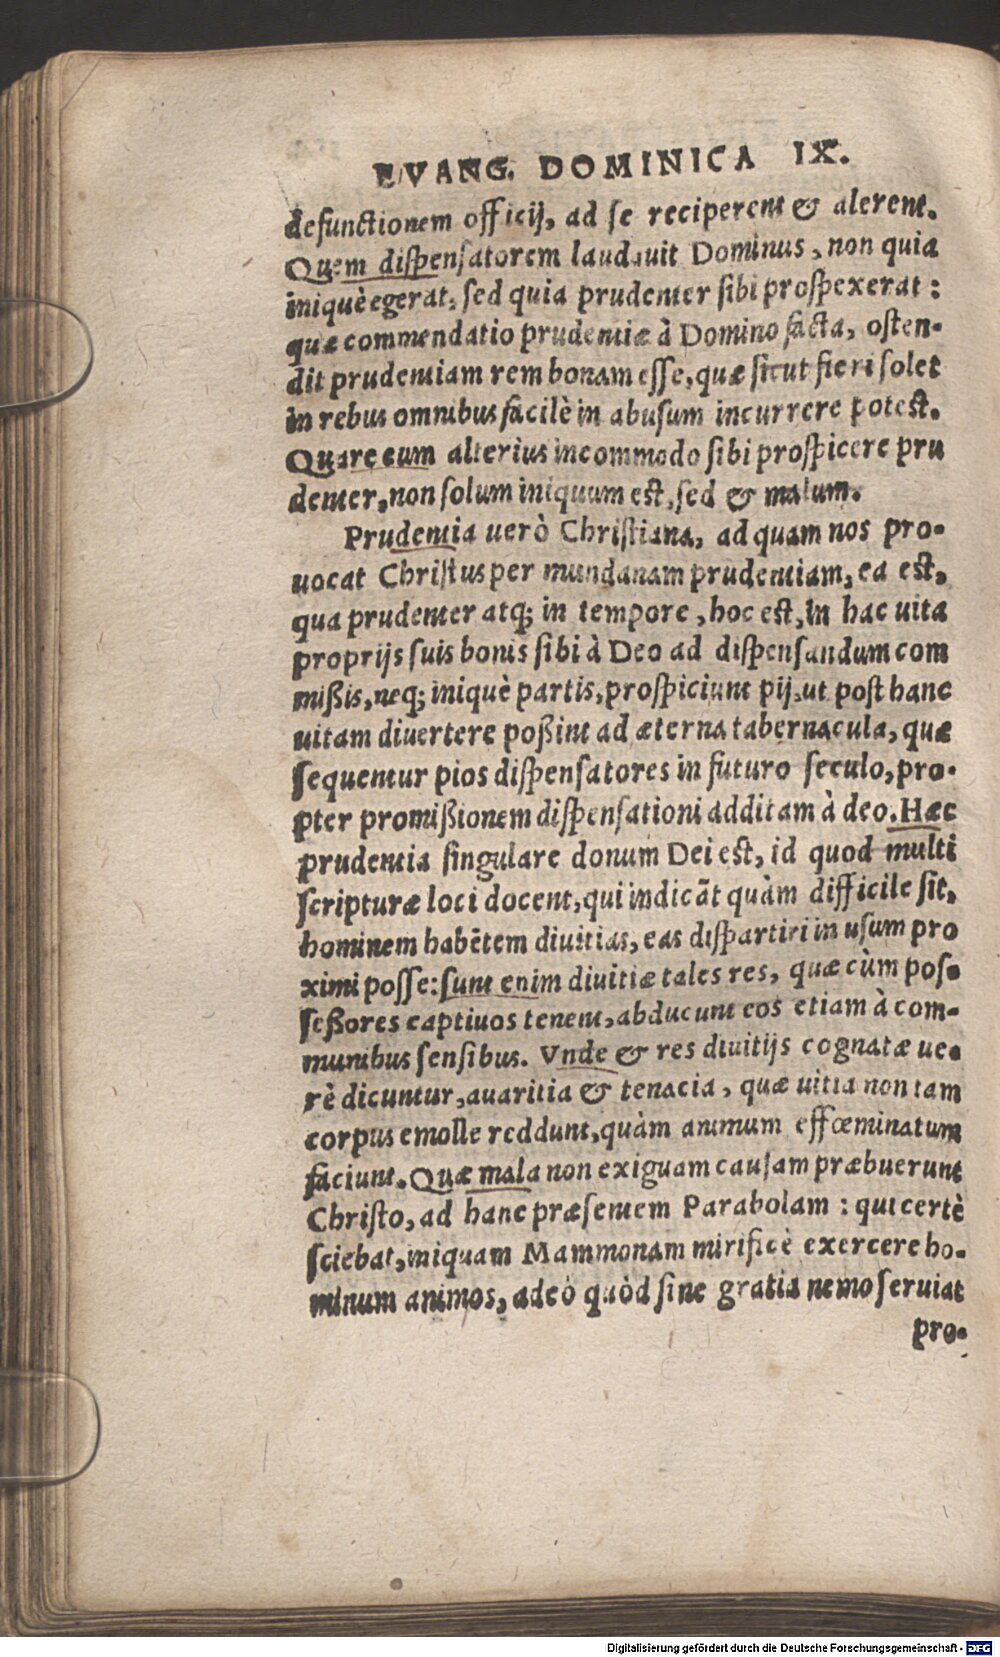 EVANG. DOMINICA IX.
defunctionem officij, ad se reciperent & alerent.
Quem dispensatorem laudauit Dominus, non quia
iniquè egerat, sed quia prudenter sibi prospexerat:
quæ commendatio prudentiæ à Domino facta, osten-
dit prudentiam rem bonam esse, quæ sicut fieri solet
in rebus omnibus facilè in abusum incurrere potest.
Quare cum alterius incommodo sibi prospicere pru
denter, non solum iniquum est, sed & malum.
Prudentia uerò Christiana, ad quam nos pro-
uocat Christus per mundanam prudentiam, ea est,
qua prudenter atq; in tempore, hoc est, in hac uita
proprijs suis bonis sibi à Deo ad dispensandum com
mißis, neq; iniquè partis, prospiciunt pij, ut post hanc
uitam diuertere poßint ad æterna tabernacula, quæ
sequentur pios dispensatores in futuro seculo, pro-
pter promißionem dispensationi additam à deo. Hæc
prudentia singulare donum Dei est, id quod multi
scripturæ loci docent, qui indicãt quàm difficile sit,
hominem habẽtem diuitias, eas dispartiri in usum pro
ximi posse: sunt enim diuitiæ tales res, quæ cùm pos-
seßores captiuos tenent, abducunt eos etiam à com-
munibus sensibus. Vnde & res diuitijs cognatæ ue-
rè dicuntur, auaritia & tenacia, quæ uitia non tam
corpus emolle reddunt, quàm animum effœminatum
faciunt. Quæ mala non exiguam causam præbuerunt
Christo, ad hanc præsentem Parabolam: qui certè
sciebat, iniquam Mammonam mirificè exercere ho-
minum animos, adeò quòd sine gratia nemo seruiat
pro-
Digitalisierung gefördert durch die Deutsche Forschungsgemeinschaft - DFG